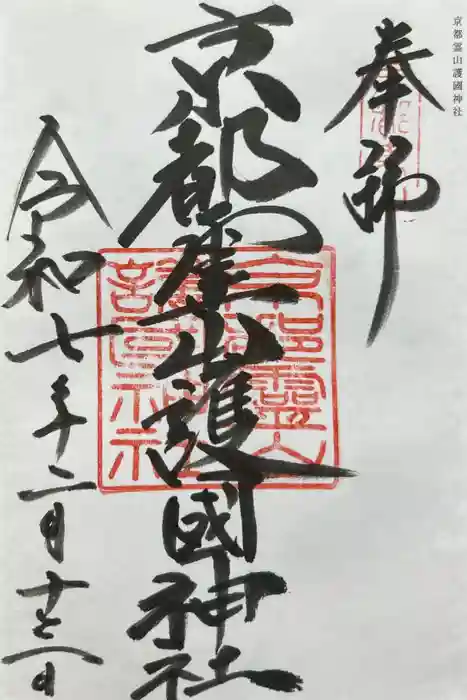 京都霊山護國神社
奉拝
京都霊山護國神社
京都靈山
護國神社
令和七年二月十日